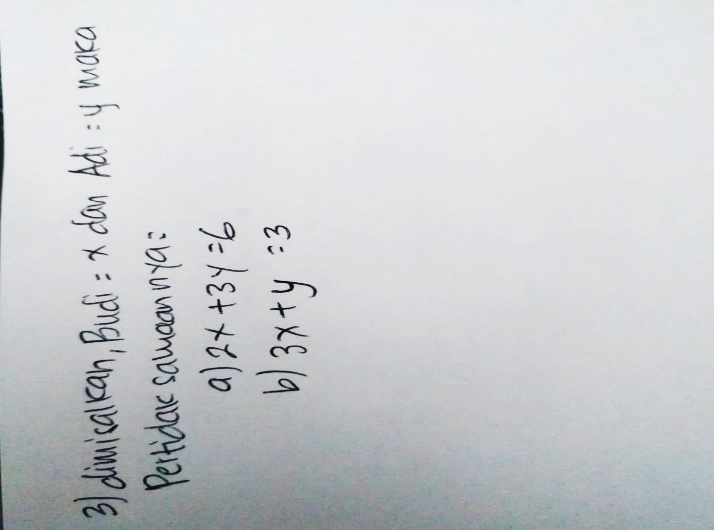 3) dimisalkan, Budi = x dan Adi = y maka
Pertidak samaannya =
a) 2x + 3y = 6
b) 3x + y = 3